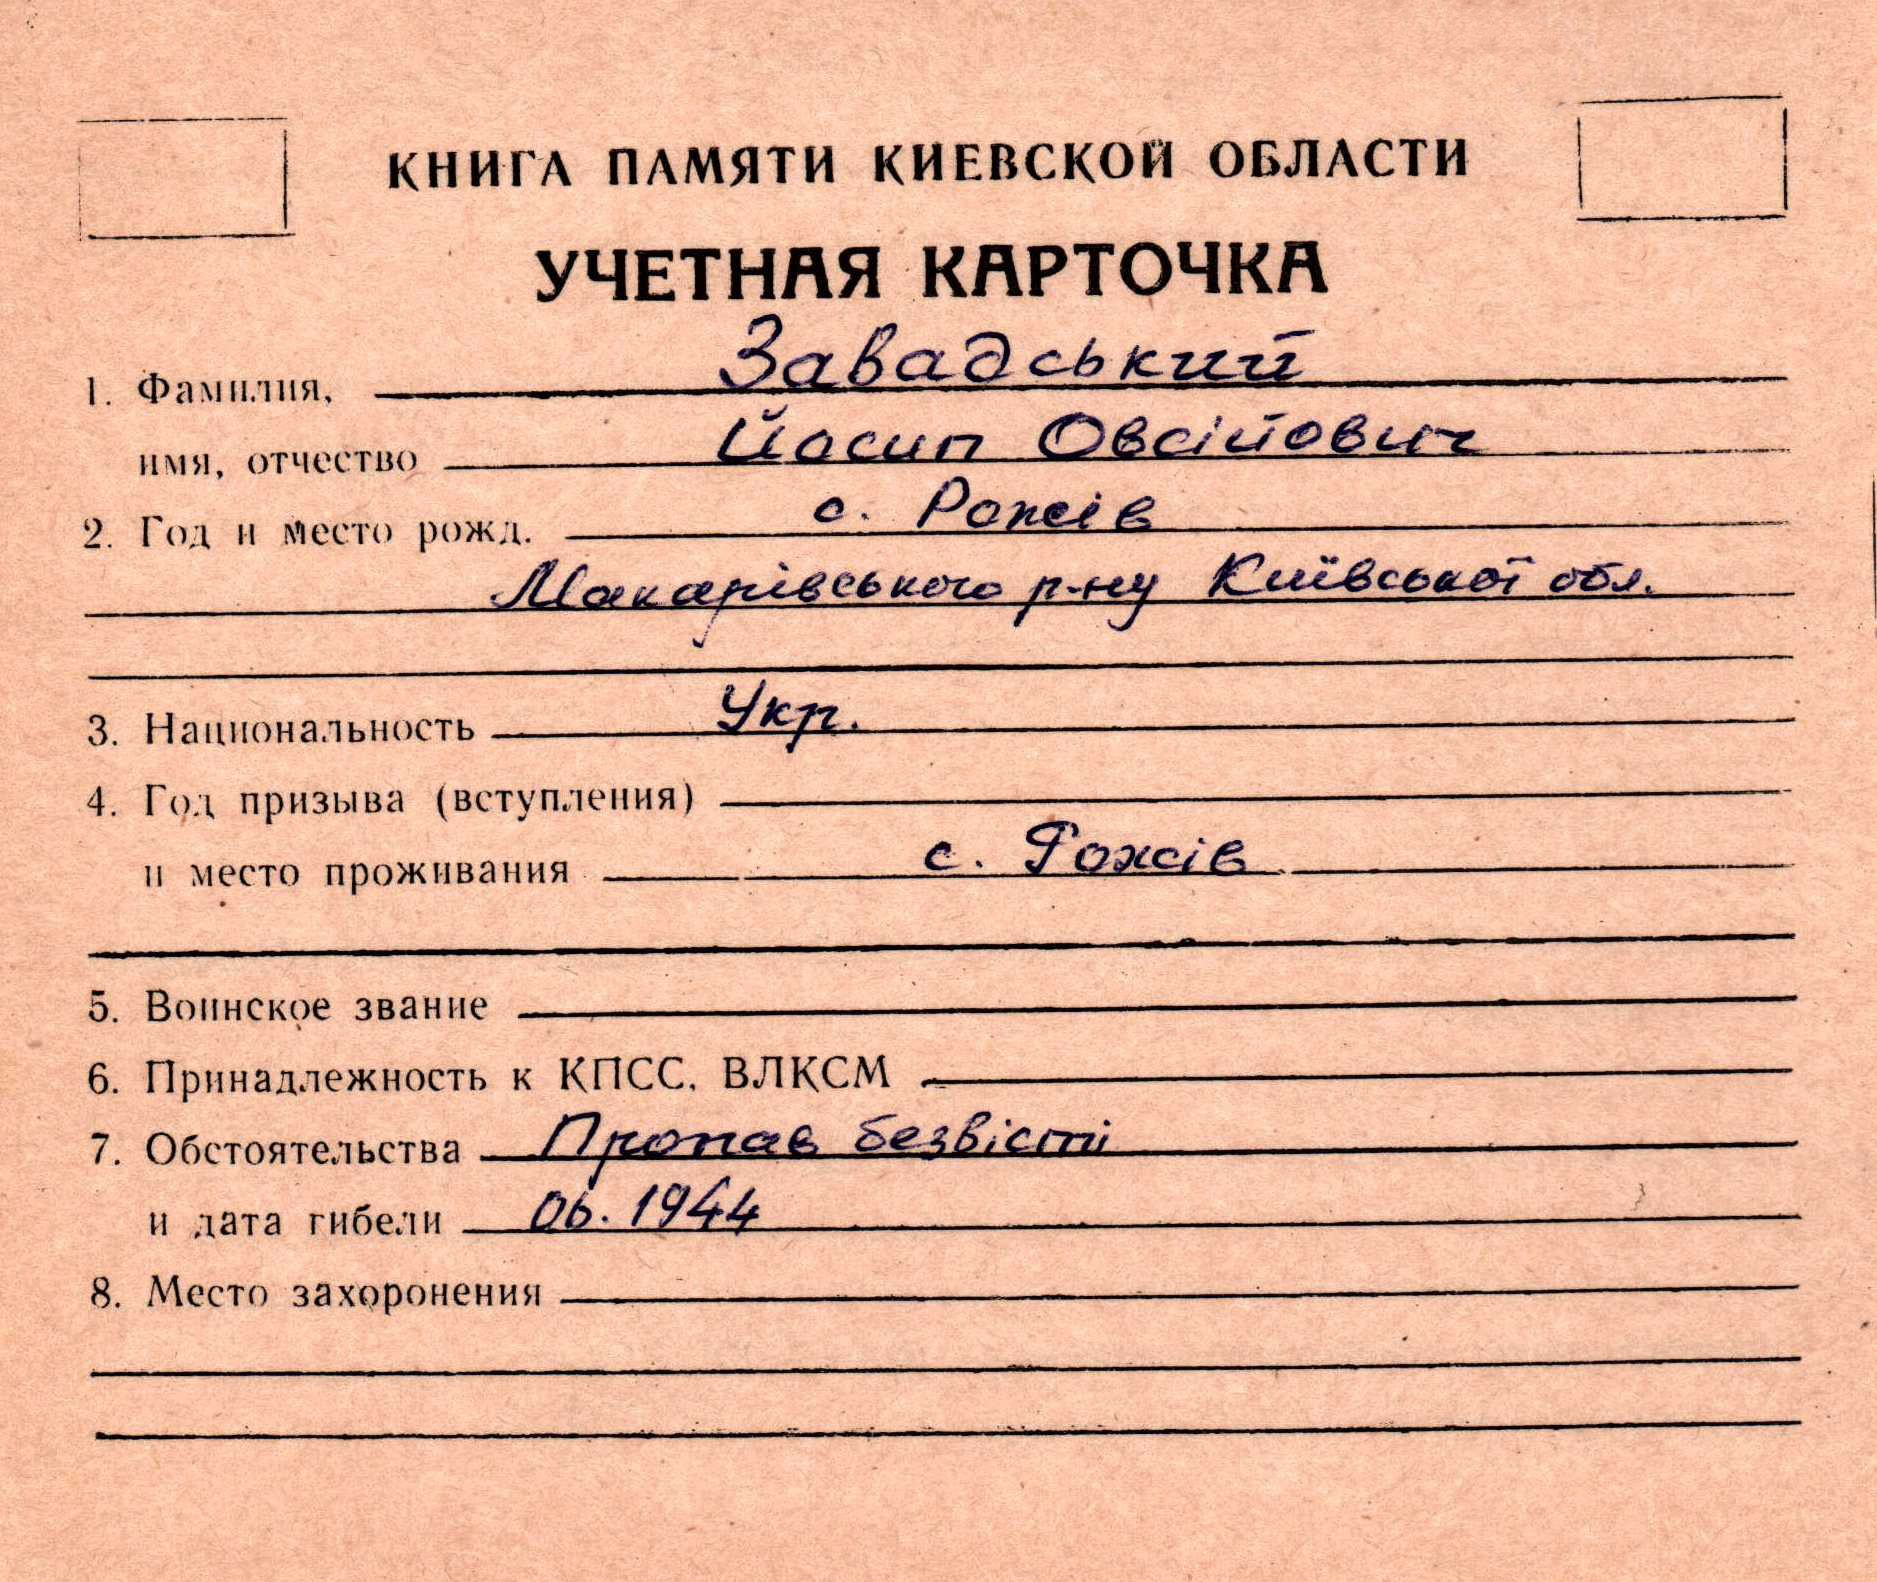 КНИГА ПАМЯТИ КИЕВСКОЙ ОБЛАСТИ
УЧЕТНАЯ КАРТОЧКА
1. Фамилия, Завадський
имя, отчество Йосип Овсійович
2. Год и место рожд. с. Рожів
Макарівського р-ну Київської обл.
3. Национальность Укр.
4. Год призыва (вступления)
и место проживания с. Рожів
5. Воинское звание
6. Принадлежность к КПСС, ВЛКСМ
7. Обстоятельства Пропав безвісті
и дата гибели 06.1944
8. Место захоронения